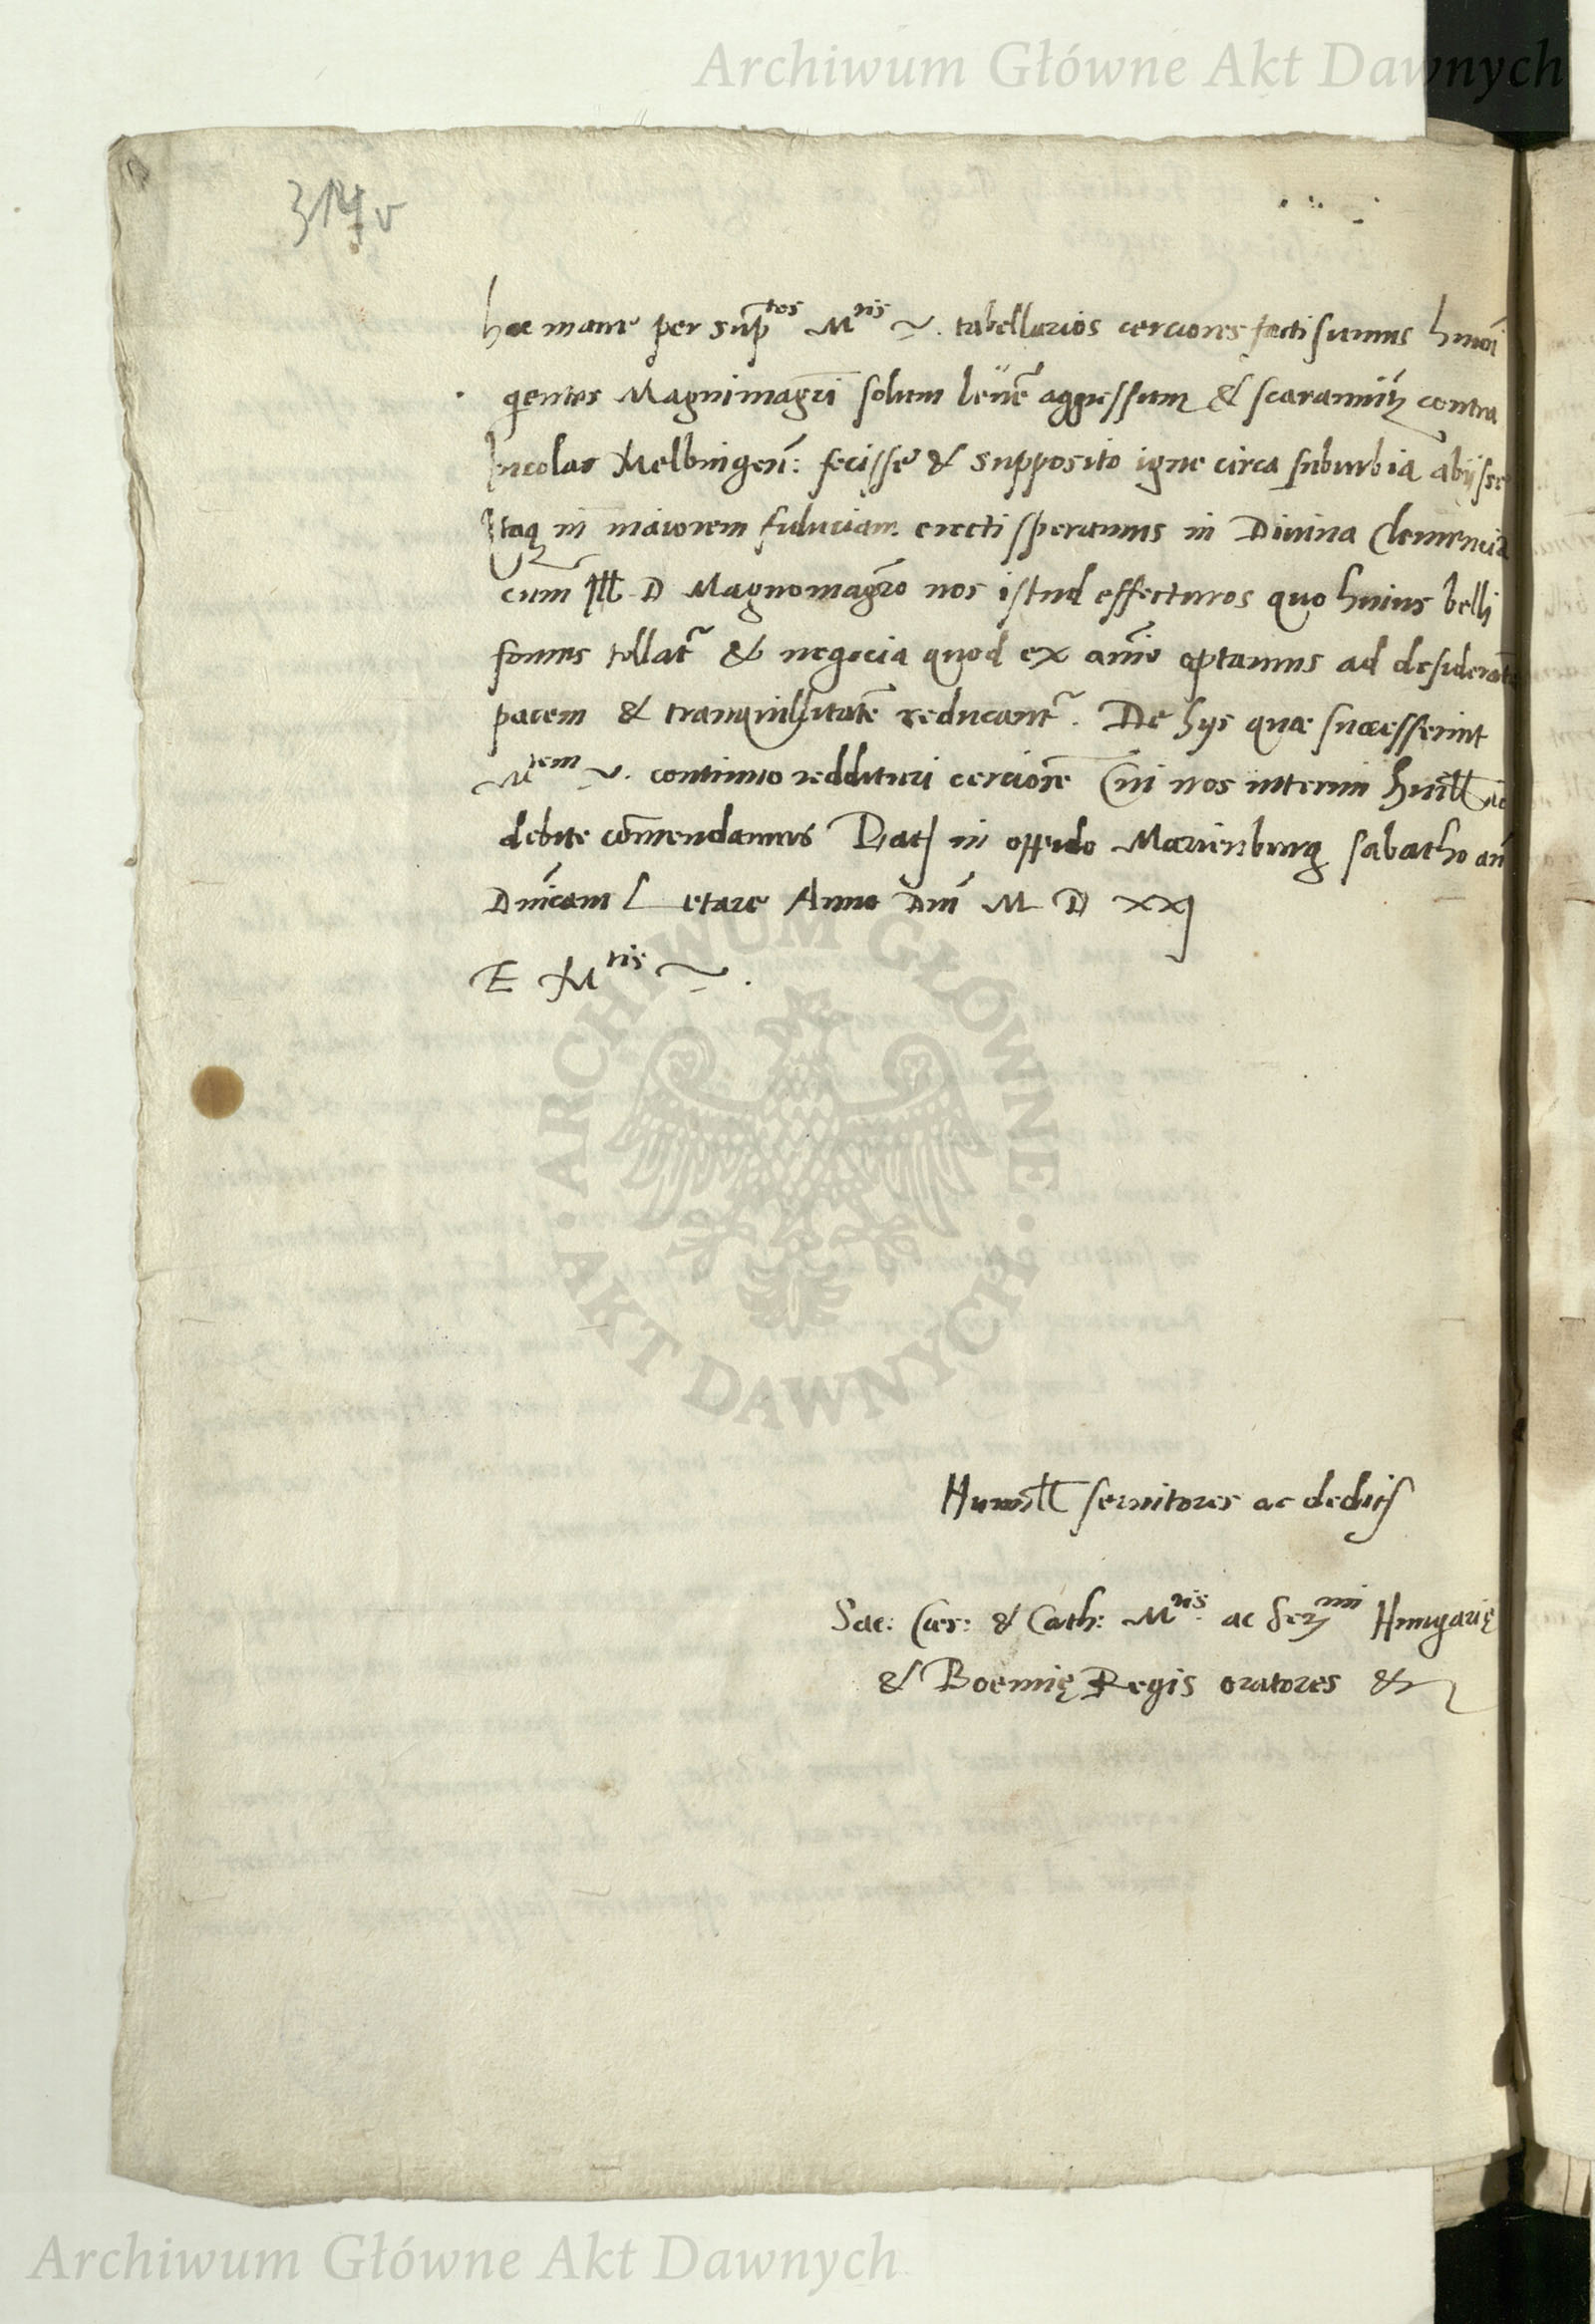 Archiwum Główne Akt Dawnych
314v
hoc mane per sup^tos M^tis v. tabellarios cerciores facti sumus hmōi
gentes Magnimagrī solum leuē aggressum & scaramutz contra
Incolas Melbingeñ: fecisse & supposito igne circa suburbia abijsse
Itaq in maiorem fiduciam erecti speramus in Diuina Clemencia
cum Ill D Magnomagrō nos istud effecturos quo huius belli
fomes tollatr & negocia quod ex animo optamus ad desideratā
pacem & tranquillitatē reducantr. De hijs quæ successerint
M^tem v. continuo reddituri cerciorē Cui nos interim humill ac
debite comendamus Dat in oppido Marienburg sabatho añ
Dnīcam Letare Anno Dnī M D XXI
E M^tis v.
ARCHIWUM GŁÓWNE
AKT DAWNYCH
Humill seruitores ac dediti
Sac: Cæs: & Cath: M^tis ac Ser^mi Hungarię
& Boemię Regis oratores &
Archiwum Główne Akt Dawnych